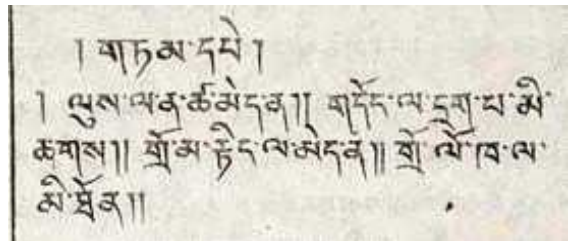 ། གཏམ་དཔེ །
། ལུས་ལ་ན་ཚ་མེད་ན།། གདོང་ལ་དྲག་པ་མི་
ཆགས།། གྲོ་མ་རྟིང་ལ་མེད་ན།། གྲོ་ལོ་ཁ་ལ་
མི་ཐོན།།